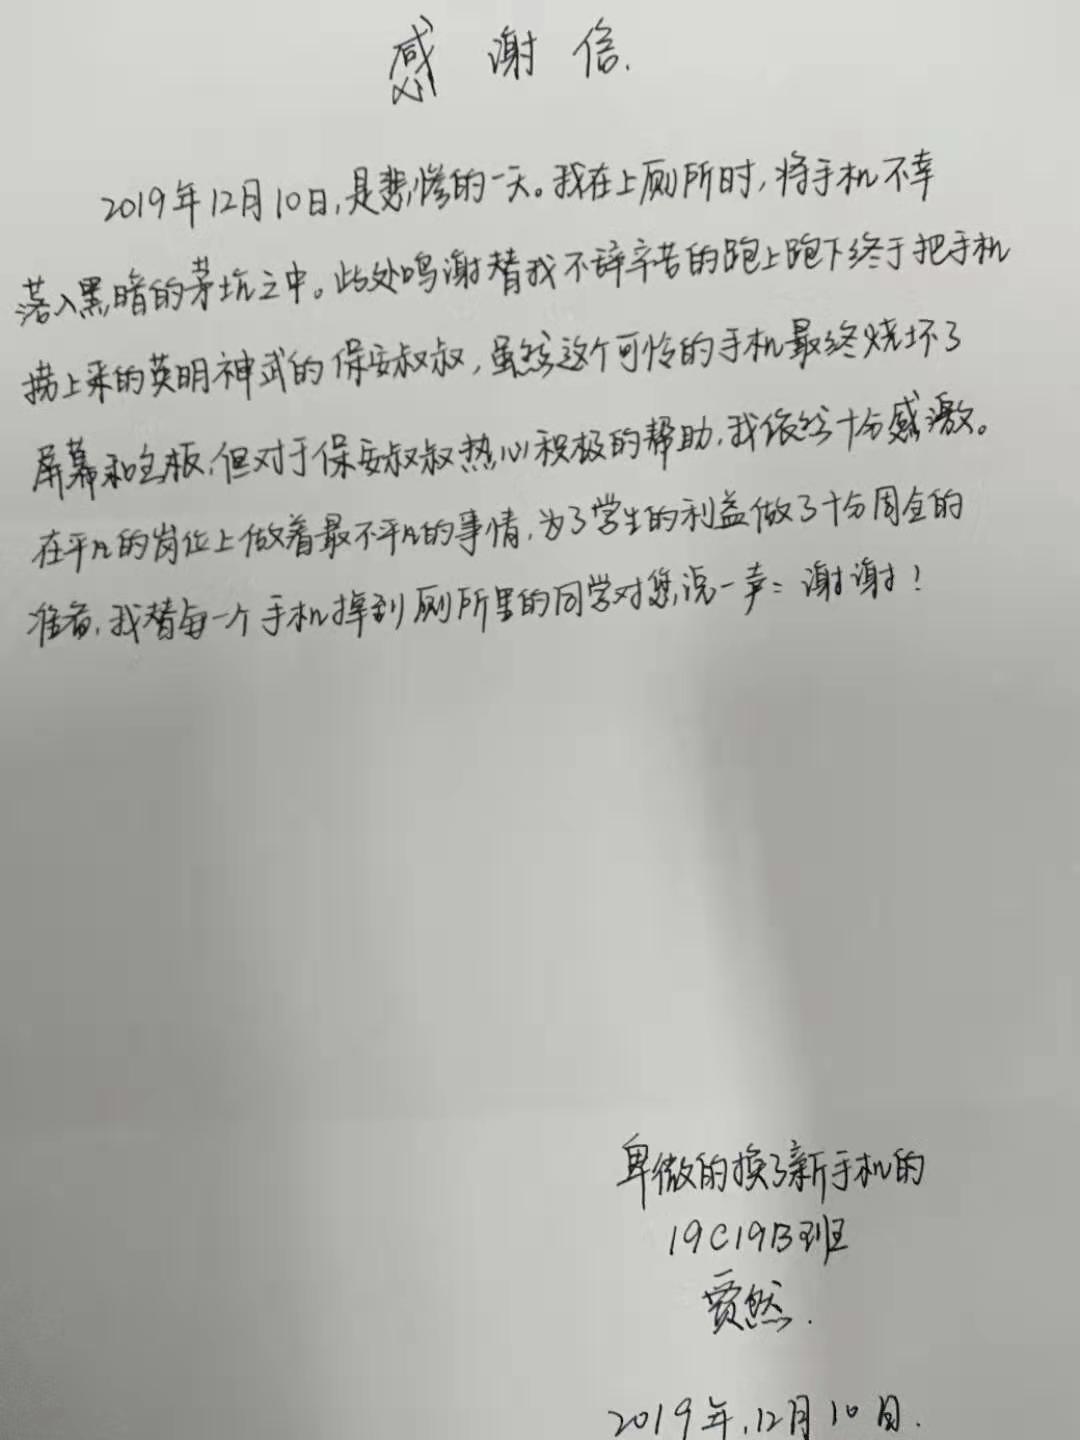 感谢信.
2019年12月10日,是悲惨的一天。我在上厕所时,将手机不幸
落入黑暗的茅坑之中。此处鸣谢替我不辞辛苦的跑上跑下终于把手机
捞上来的英明神武的保安叔叔,虽然这个可怜的手机最终烧坏了
屏幕和主板,但对于保安叔叔热心积极的帮助,我依然十分感激。
在平凡的岗位上做着最不平凡的事情,为了学生的利益做了十分周全的
准备,我替每一个手机掉到厕所里的同学对您说一声:谢谢!
卑微的换了新手机的
19C19B班
贾然.
2019年.12月10日.